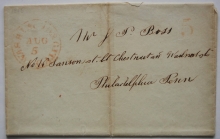 AUG
5
5
Mr J P Ross
No 16 Sansom st bt Chestnut and Walnut st
Philadelphia Penn